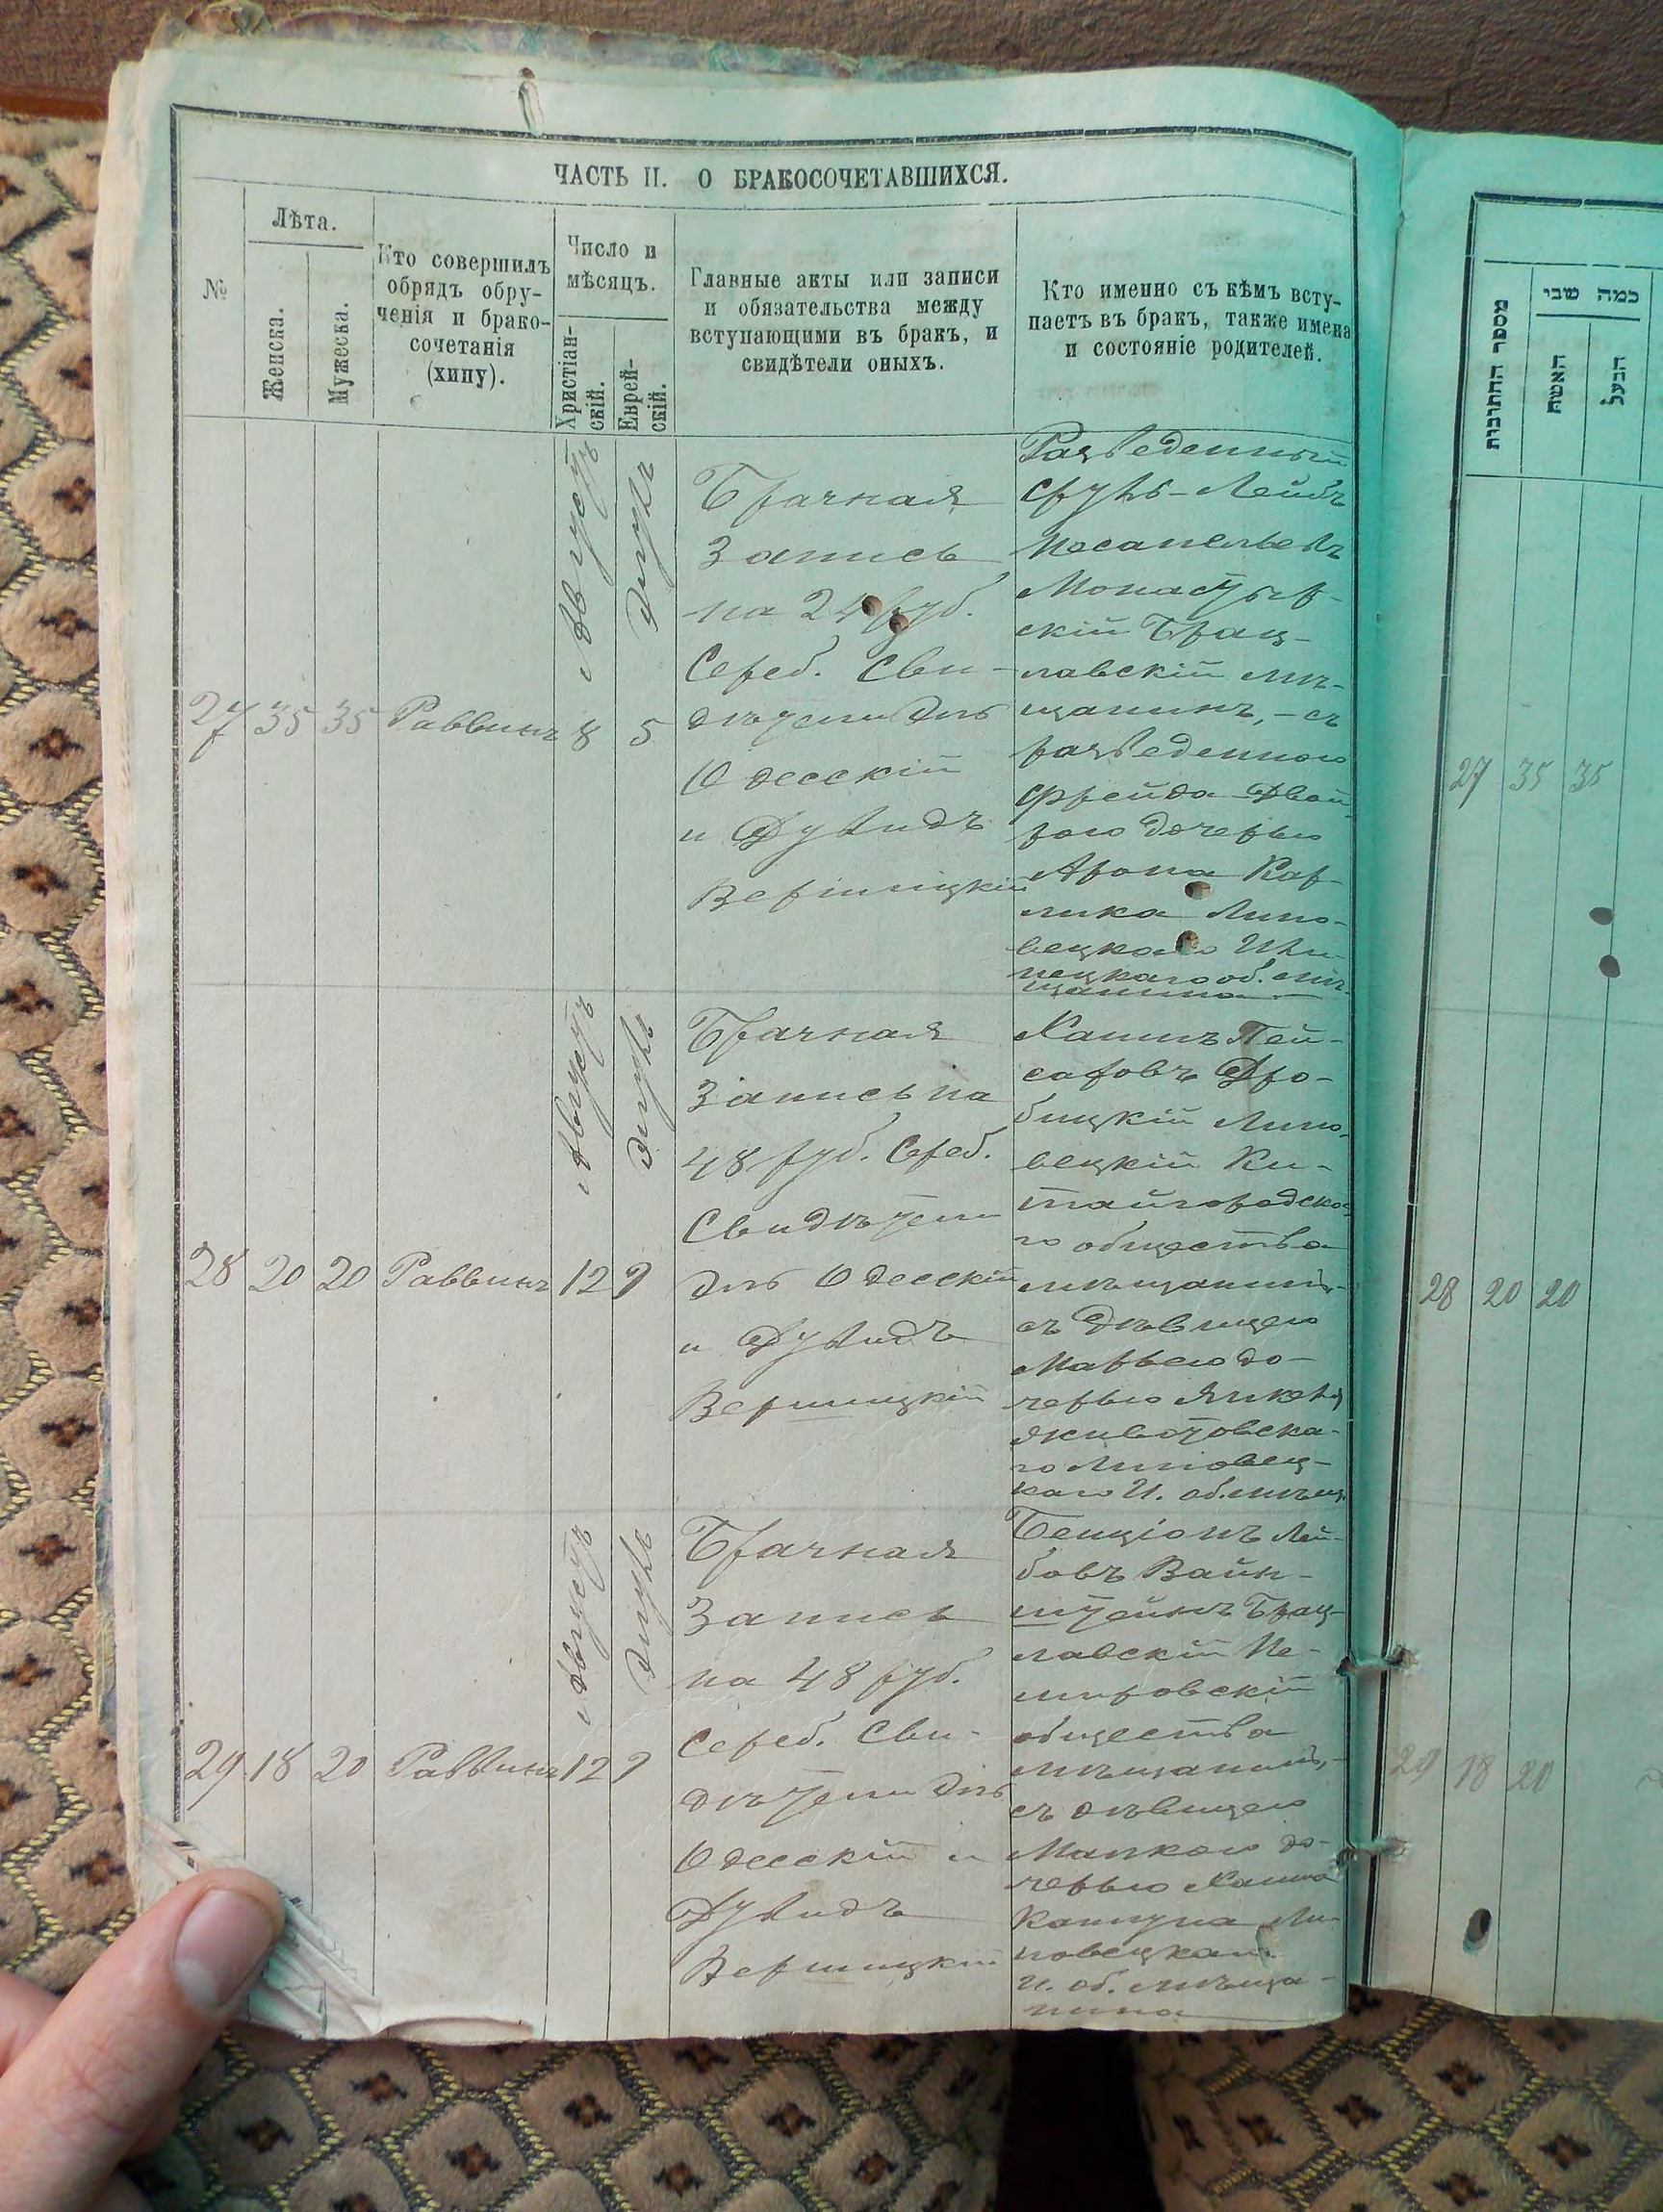 ЧАСТЬ II. О БРАКОСОЧЕТАВШИХСЯ.
№
Лѣта.
Женска.
Мужеска.
Кто совершилъ
обрядъ обру-
ченія и брако-
сочетанія
(хипу).
Число и
мѣсяцъ.
Христіан-
скій.
Еврей-
скій.
Главные акты или записи
и обязательства между
вступающими въ бракъ, и
свидѣтели оныхъ.
Кто именно съ кѣмъ всту-
паетъ въ бракъ, также имена
и состояніе родителей.
27 35 35 Раввинъ
Августъ
8
5
Брачная
Запись
на 24 руб.
Сереб. Сви-
дѣтели
Одесскій
и Дувидъ
Верницкій
Разведенный
Сруль-Лейбъ
Монастыр-
скій Брац-
лавскій мѣ-
щанинъ, - съ
разведенною
Фрейда Двой
рою дочерью
Арона Кор-
мика Липо-
вецкаго Или-
нецкаго об. мѣ-
щанина
28 20 20 Раввинъ
Августъ
12
9
Брачная
Запись на
48 руб. Сереб.
Свидѣтели
Одесскій
и Дувидъ
Верницкій
Хаимъ Пей-
саховъ Дро-
бицкій Липо-
вецкій Ки-
тайгородска-
го общества
мѣщанинъ,-
съ дѣвицею
Марьею до-
черью Янкеля
Животовска-
го Липовец-
каго И. об. мѣщ.
29 18 20 Раввинъ
Августъ
12
9
Брачная
Запись
на 48 руб.
Сереб. Сви-
дѣтели
Одесскій и
Дувидъ
Верницкій
Бенціонъ Лей-
бовъ Вайн-
штейнъ Брац-
лавскій Не-
мировскій
общества
мѣщанинъ,-
съ дѣвицею
Манкою до-
черью Хаима
Ли-
повецкаго
И. об. мѣща-
нина
מספר החתונות
כמה שני
האשה
הבעל
27 35 35
28 20 20
29 18 20